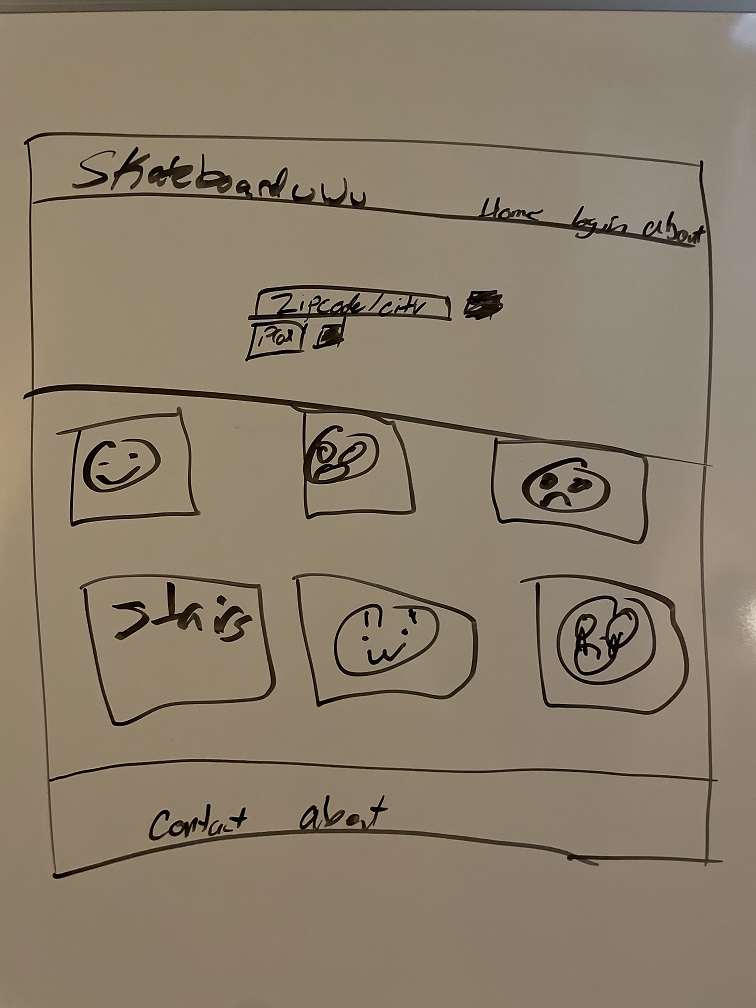 SkateboarduWu
Home login about
Zipcode/city
stairs
Contact about